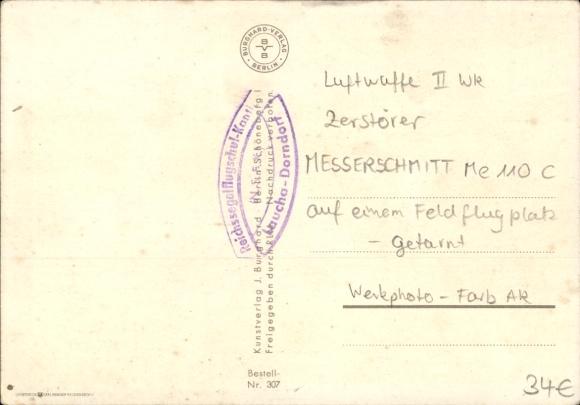 BURGHARD-VERLAG
BVB
BERLIN
Luftwaffe II Wk
Zerstörer
MESSERSCHMITT Me 110 C
auf einem Feldflugplatz
- getarnt
Werkphoto - Farb AK
Reichssegelflugschul-Kant.
Laucha-Dorndorf
Kunstverlag J. Burghard · Berlin-Schöneberg I
Freigegeben durch RLM · Nachdruck verboten
Bestell-
Nr. 307
34€